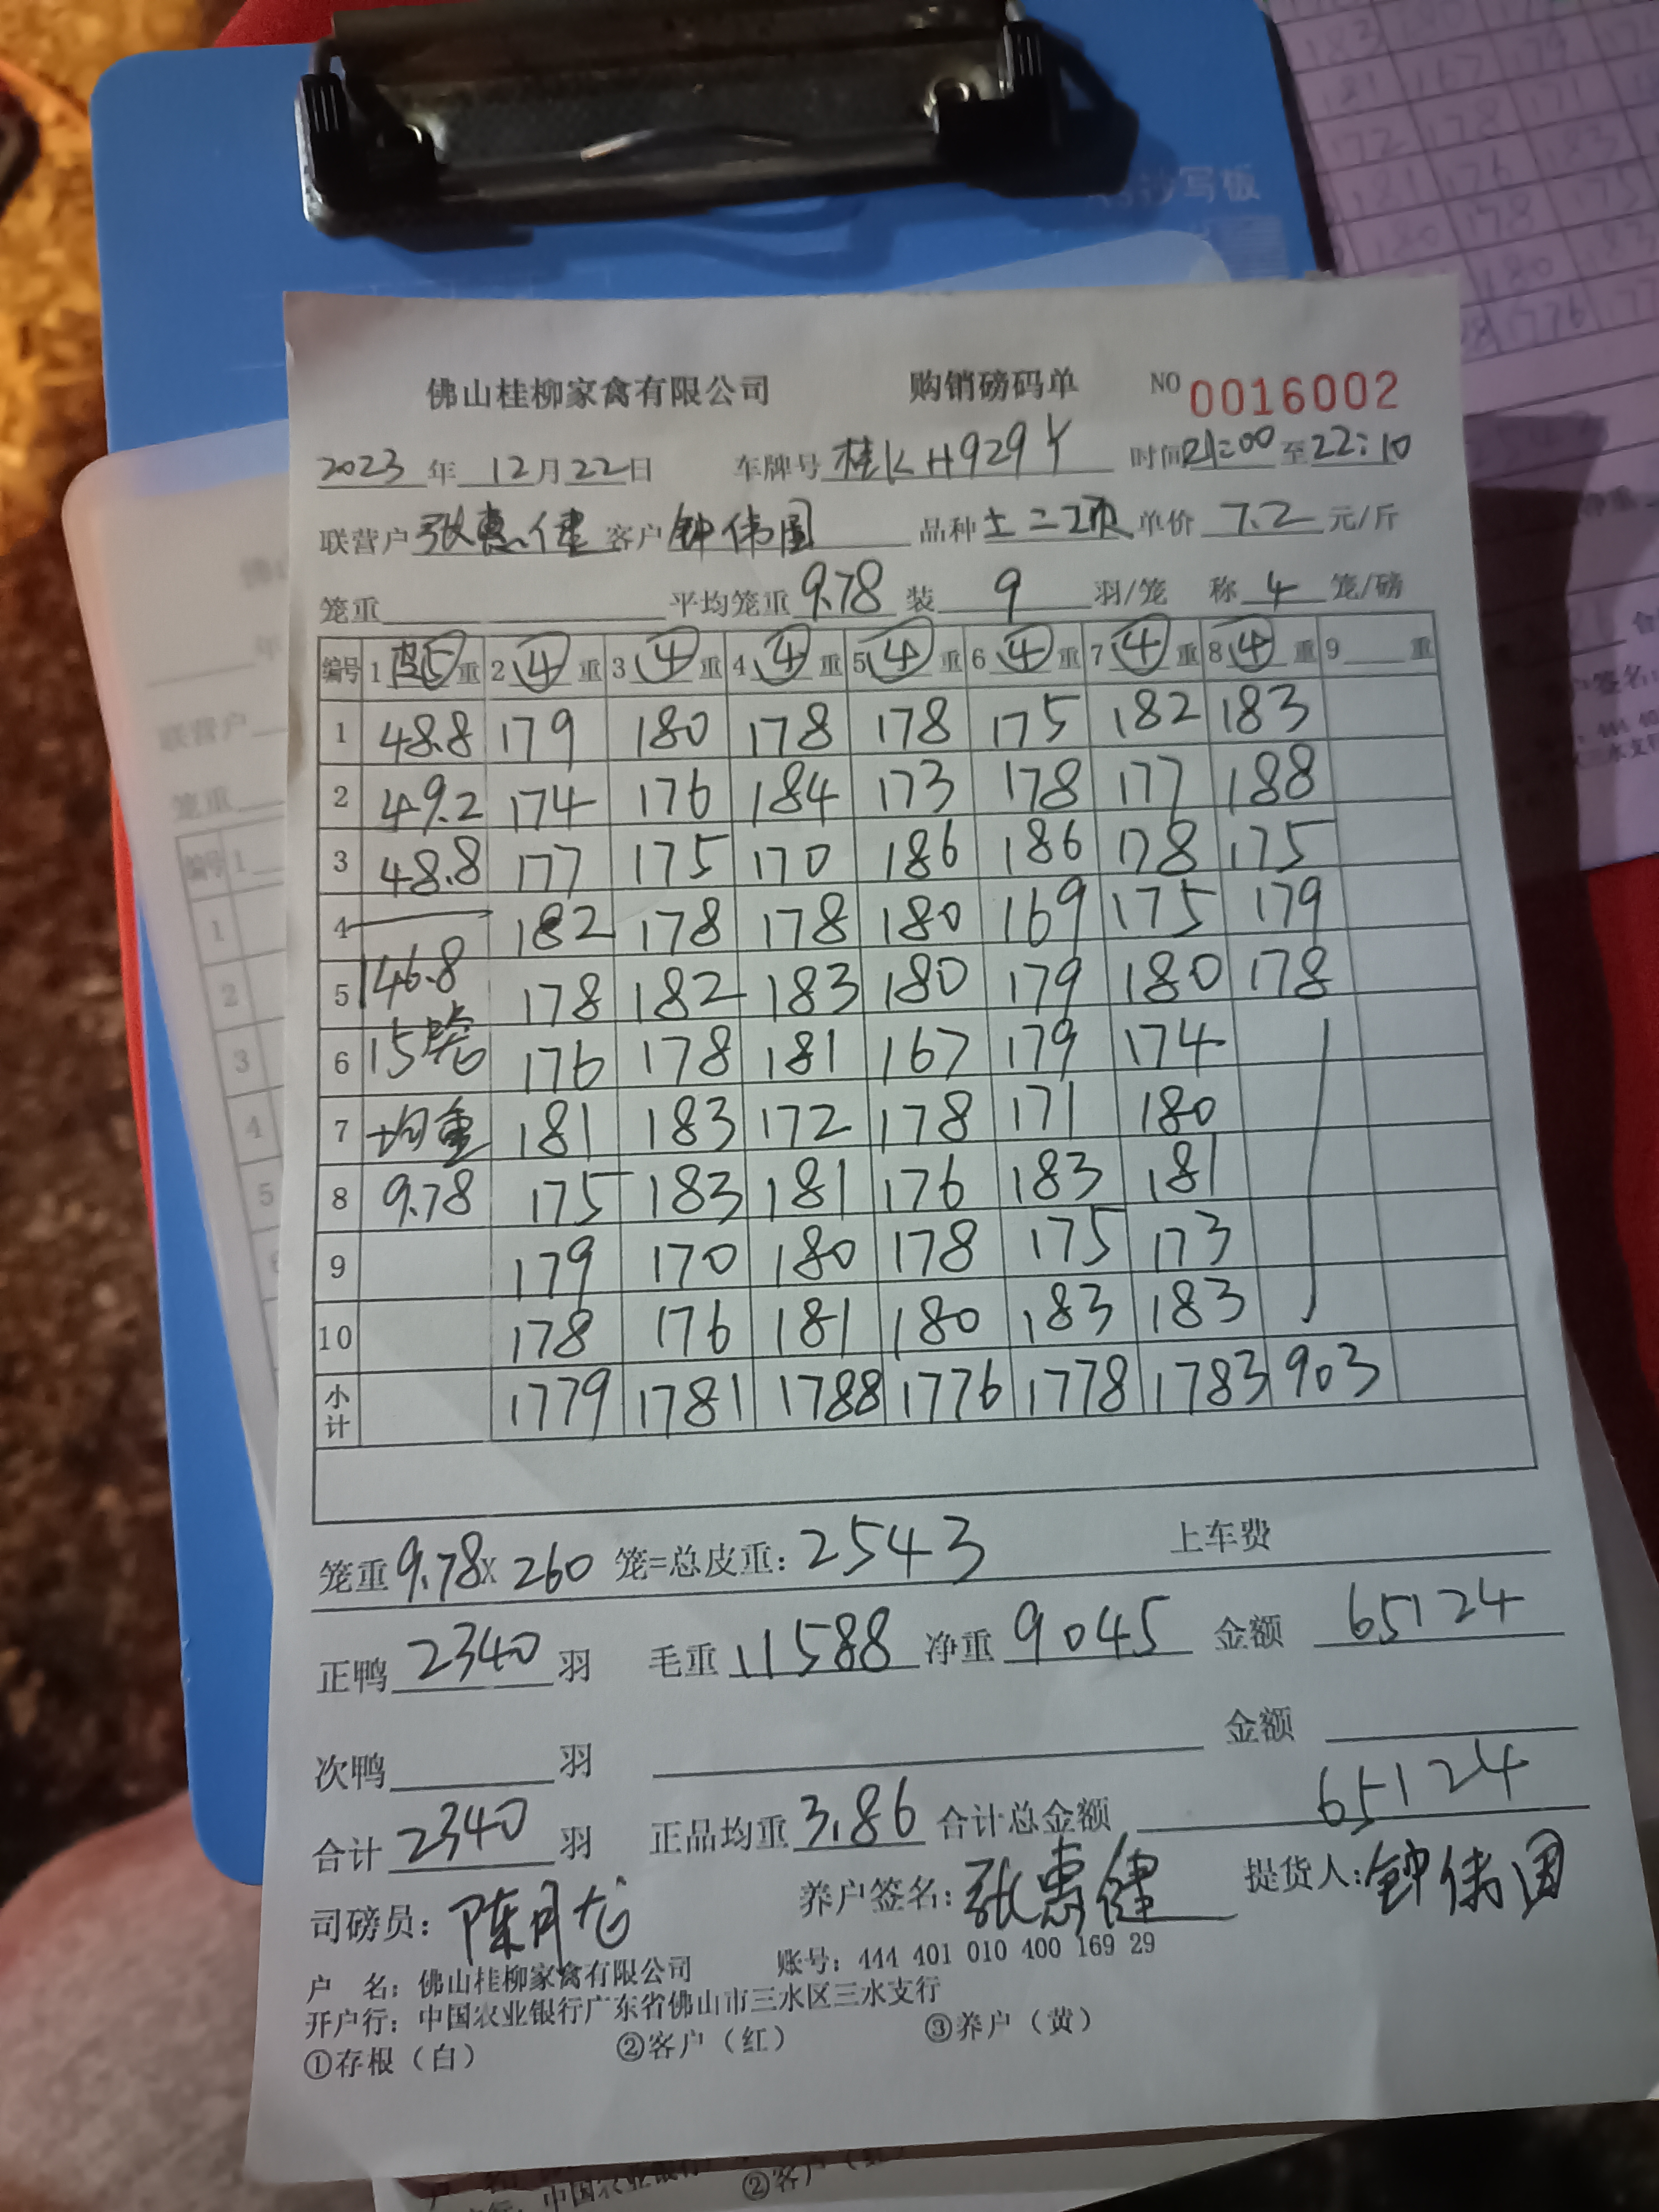 抄写板
佛山桂柳家禽有限公司 购销磅码单 NO 0016002
2023年 12月22日 车牌号 桂KH929Y 时间21:00至22:10
联营户 张惠健 客户 钟伟国 品种 土二 单价 7.2 元/斤
笼重 平均笼重 9.78 装 9 羽/笼 称 4 笼/磅
编号 1 皮⑤重 2 ④ 重 3 ④ 重 4 ④ 重 5 ④ 重 6 ④ 重 7 ④ 重 8 ④ 重 9 重
1 48.8 179 180 178 178 175 182 183
2 49.2 174 176 184 173 178 177 188
3 48.8 177 175 170 186 186 178 175
4 182 178 178 180 169 175 179
5 146.8 178 182 183 180 179 180 178
6 15笼 176 178 181 167 179 174
7 均重 181 183 172 178 171 180
8 9.78 175 183 181 176 183 181
9 179 170 180 178 175 173
10 178 176 181 180 183 183
小计 1779 1781 1788 1776 1778 1783 903
笼重 9.78 x 260 笼=总皮重: 2543 上车费
正鸭 2340 羽 毛重 11588 净重 9045 金额 65124
次鸭 羽 金额
合计 2340 羽 正品均重 3.86 合计总金额 65124
司磅员: 陈月龙 养户签名: 张惠健 提货人: 钟伟国
户 名: 佛山桂柳家禽有限公司 账号: 444 401 010 400 169 29
开户行: 中国农业银行广东省佛山市三水区三水支行
①存根（白） ②客户（红） ③养户（黄）